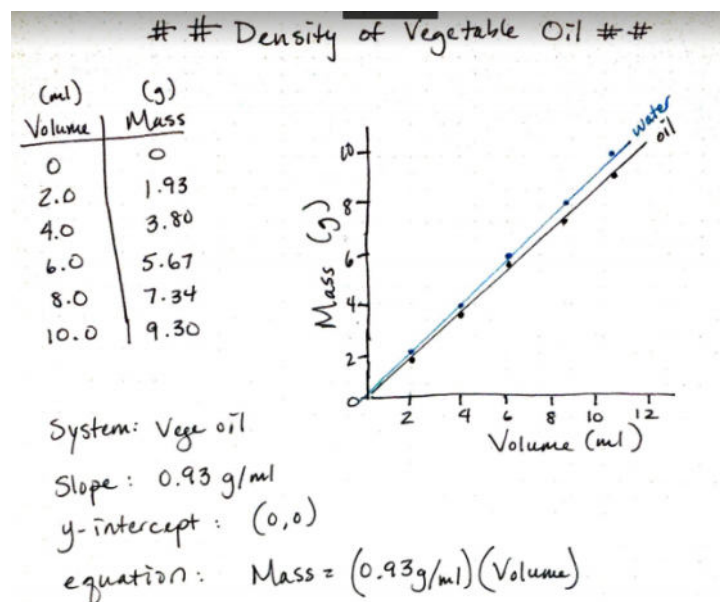 # # Density of Vegetable Oil # #
(ml) (g)
Volume Mass
0 0
2.0 1.93
4.0 3.80
6.0 5.67
8.0 7.34
10.0 9.30
Water
oil
Mass (g)
10
8
6
4
2
0
2 4 6 8 10 12
Volume (ml)
System: Vege oil
Slope: 0.93 g/ml
y-intercept: (0,0)
equation: Mass = (0.93g/ml)(Volume)